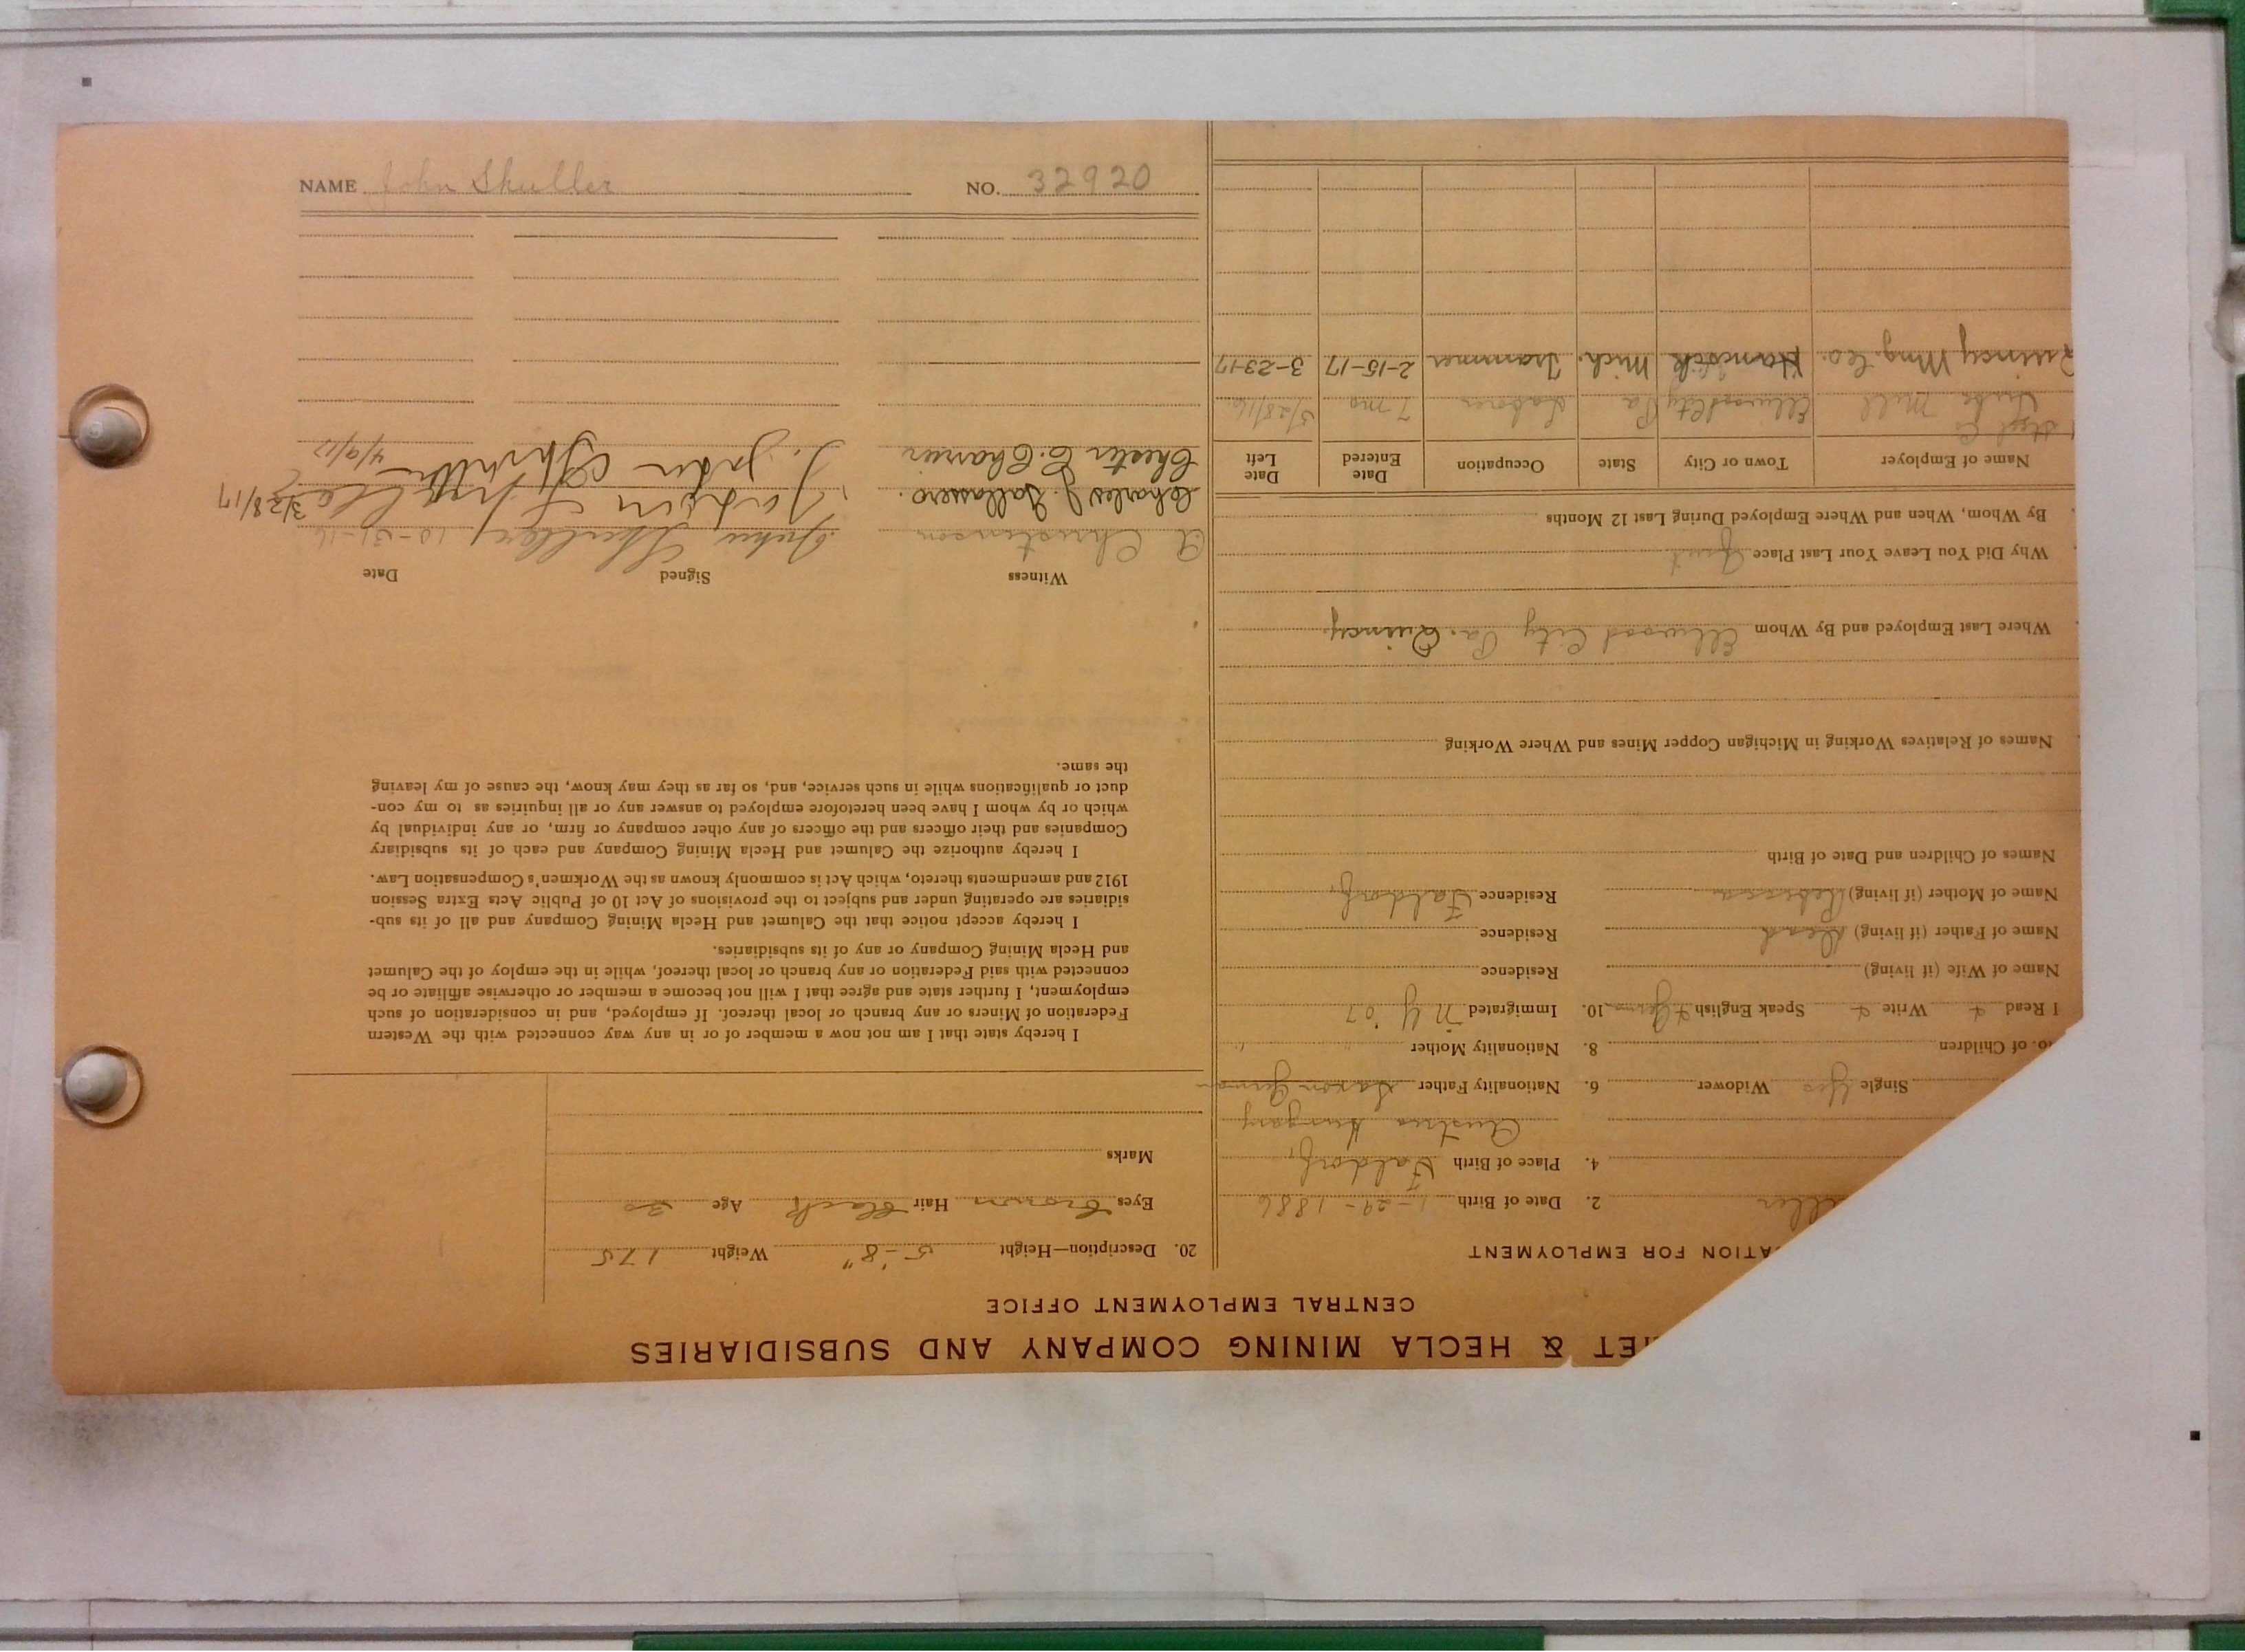 NAME John Shuller NO. 32920
ET & HECLA MINING COMPANY AND SUBSIDIARIES
CENTRAL EMPLOYMENT OFFICE
ATION FOR EMPLOYMENT
ller 2. Date of Birth 1-29-1886
4. Place of Birth Faldorf,
Austria Hungary
Single Yes Widower 6. Nationality Father Saxon German
o. of Children 8. Nationality Mother " "
I Read + Write + Speak English + German 10. Immigrated N Y '07
Name of Wife (if living) Residence
Name of Father (if living) Dead Residence
Name of Mother (if living) Rebecca Residence Faldorf,
Names of Children and Date of Birth
Names of Relatives Working in Michigan Copper Mines and Where Working
Where Last Employed and By Whom Ellwood City Pa. Quincy.
Why Did You Leave Your Last Place Quit
By Whom, When and Where Employed During Last 12 Months
Name of Employer Town or City State Occupation Date Entered Date Left
Steel Co
Mill Ellwood City Pa Laborer 7 mo 5/28/16
Quincy Mng. Co. Hancock Mich. Trammer 2-15-17 3-23-17
20. Description—Height 5'-8" Weight 175
Eyes Brown Hair Black Age 30
Marks
I hereby state that I am not now a member of or in any way connected with the Western
Federation of Miners or any branch or local thereof. If employed, and in consideration of such
employment, I further state and agree that I will not become a member or otherwise affiliate or be
connected with said Federation or any branch or local thereof, while in the employ of the Calumet
and Hecla Mining Company or any of its subsidiaries.
I hereby accept notice that the Calumet and Hecla Mining Company and all of its sub-
sidiaries are operating under and subject to the provisions of Act 10 of Public Acts Extra Session
1912 and amendments thereto, which Act is commonly known as the Workmen's Compensation Law.
I hereby authorize the Calumet and Hecla Mining Company and each of its subsidiary
Companies and their officers and the officers of any other company or firm, or any individual by
which or by whom I have been heretofore employed to answer any or all inquiries as to my con-
duct or qualifications while in such service, and, so far as they may know, the cause of my leaving
the same.
Witness Signed Date
A Christinson John Shuller 10-31-16
Charles J. Gallassero. 3/28/17
Chester E. Charrier 4/9/17